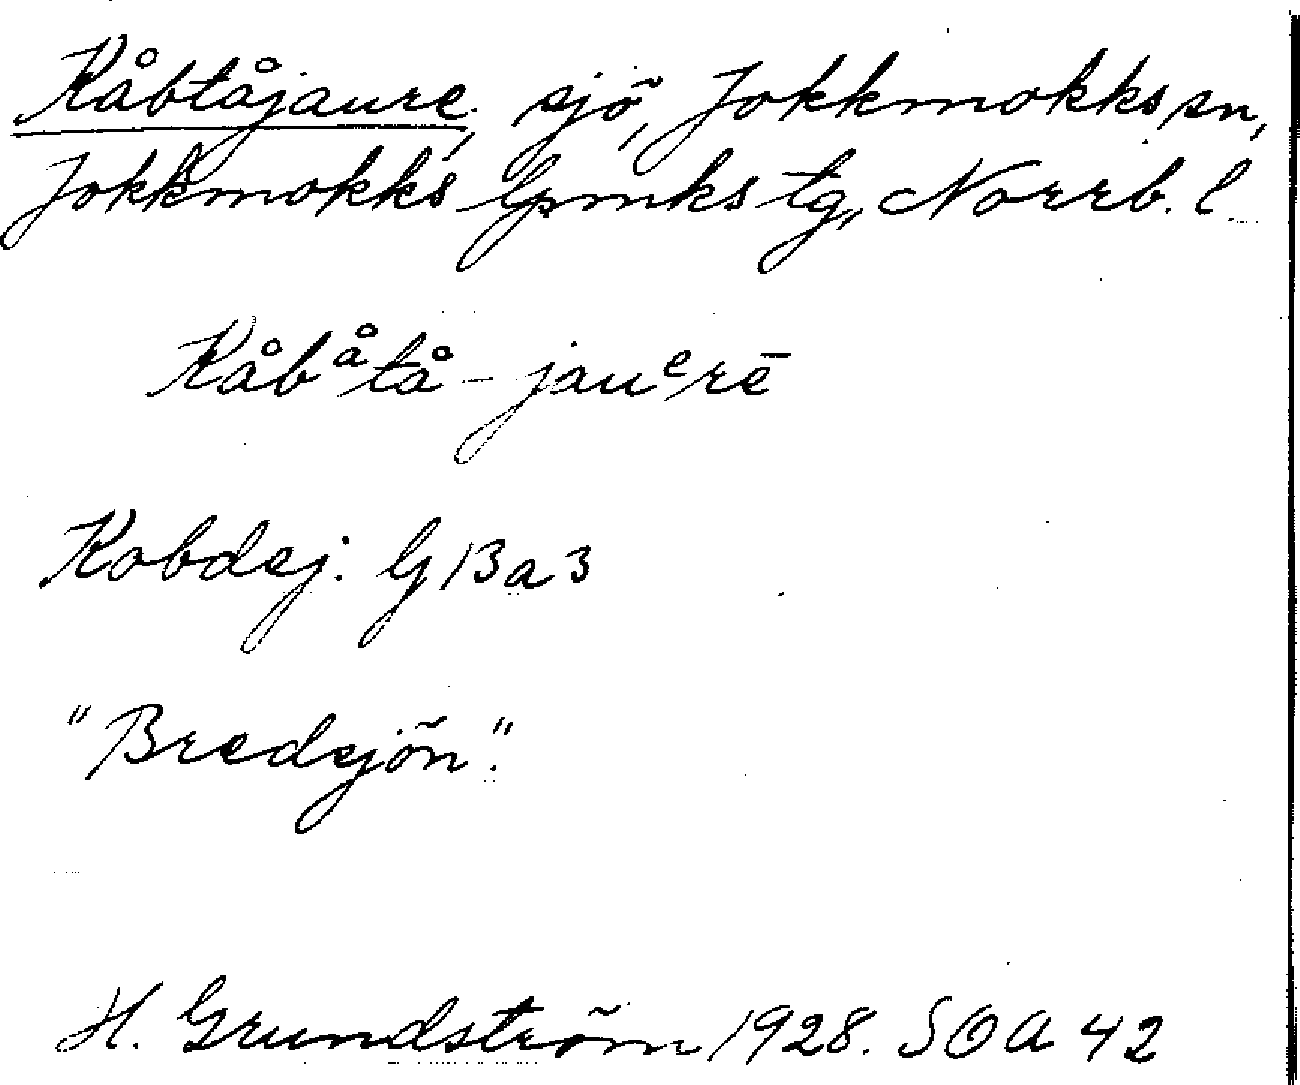 Kåbtåjaure, sjö, Jokkmokks sn,
Jokkmokks lpmks tg, Norrb. l
Kåbåtå-jauerē
Kobdej: G 13 a 3
"Bredsjön".
H. Grundström 1928. SOA 42